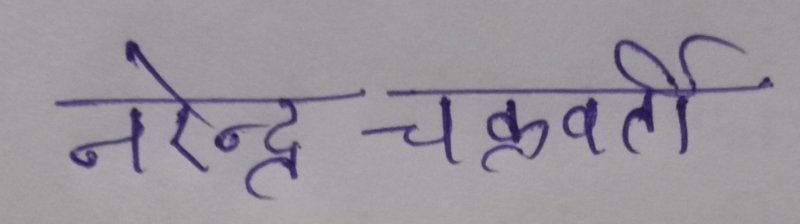 नरेन्द्र चक्रवर्ती